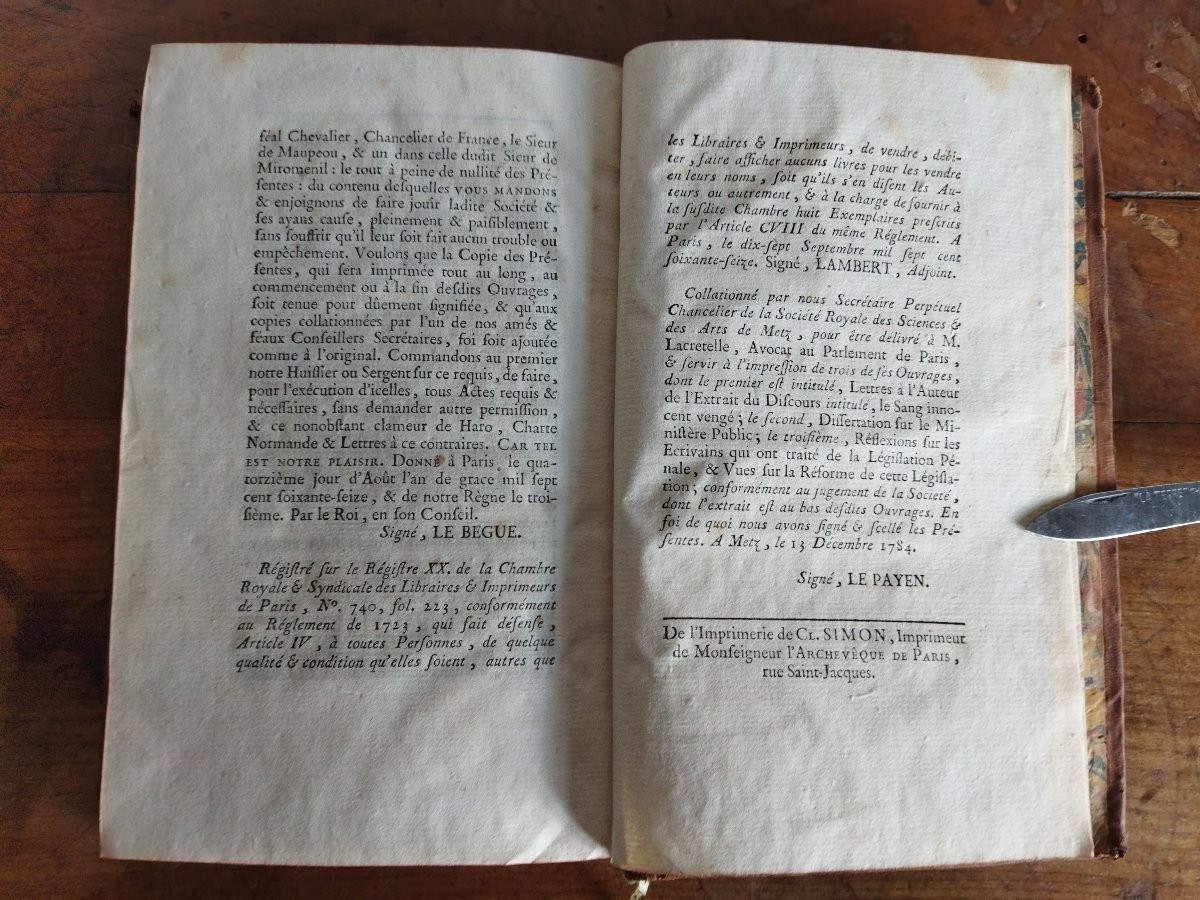 féal Chevalier, Chancelier de France, le Sieur
de Maupeou, & un dans celle dudit Sieur de
Miromenil : le tout à peine de nullité des Pré-
ſentes : du contenu deſquelles VOUS MANDONS
& enjoignons de faire jouir ladite Société &
ſes ayans cauſe, pleinement & paiſiblement,
ſans ſouffrir qu'il leur ſoit fait aucun trouble ou
empêchement. Voulons que la Copie des Pré-
ſentes, qui ſera imprimée tout au long, au
commencement ou à la fin deſdits Ouvrages,
ſoit tenue pour dûement ſignifiée, & qu'aux
copies collationnées par l'un de nos amés &
féaux Conſeillers Secrétaires, foi ſoit ajoutée
comme à l'original. Commandons au premier
notre Huiſſier ou Sergent ſur ce requis, de faire,
pour l'exécution d'icelles, tous Actes requis &
néceſſaires, ſans demander autre permiſſion,
& ce nonobſtant clameur de Haro, Charte
Normande & Lettres à ce contraires. CAR TEL
EST NOTRE PLAISIR. DONNÉ à Paris le qua-
torzième jour d'Août l'an de grace mil ſept
cent ſoixante-ſeize, & de notre Règne le troi-
ſième. Par le Roi, en ſon Conſeil.
Signé, LE BEGUE.
Régiſtré ſur le Régiſtre XX. de la Chambre
Royale & Syndicale des Libraires & Imprimeurs
de Paris, Nº. 740, fol. 223, conformément
au Réglement de 1723, qui fait défenſe,
Article IV, à toutes Perſonnes, de quelque
qualité & condition qu'elles ſoient, autres que
les Libraires & Imprimeurs, de vendre, débi-
ter, faire afficher aucuns livres pour les vendre
en leurs noms, ſoit qu'ils s'en diſent les Au-
teurs ou autrement, & à la charge de fournir à
la ſuſdite Chambre huit Exemplaires preſcrits
par l'Article CVIII du même Réglement. A
Paris, le dix-ſept Septembre mil ſept cent
ſoixante-ſeize. Signé, LAMBERT, Adjoint.
Collationné par nous Secrétaire Perpétuel
Chancelier de la Société Royale des Sciences &
des Arts de Metz, pour être délivré à M.
Lacretelle, Avocat au Parlement de Paris,
& ſervir à l'impreſſion de trois de ſes Ouvrages,
dont le premier eſt intitulé, Lettres à l'Auteur
de l'Extrait du Diſcours intitulé, le Sang inno-
cent vengé ; le ſecond, Diſſertation ſur le Mi-
niſtère Public ; le troiſième, Réflexions ſur les
Ecrivains qui ont traité de la Légiſlation Pé-
nale, & Vues ſur la Réforme de cette Légiſla-
tion ; conformément au jugement de la Société,
dont l'extrait eſt au bas deſdits Ouvrages. En
foi de quoi nous avons ſigné & ſcellé les Pré-
ſentes. A Metz, le 13 Décembre 1784.
Signé, LE PAYEN.
De l'Imprimerie de CL. SIMON, Imprimeur
de Monſeigneur l'ARCHEVÊQUE DE PARIS,
rue Saint-Jacques.